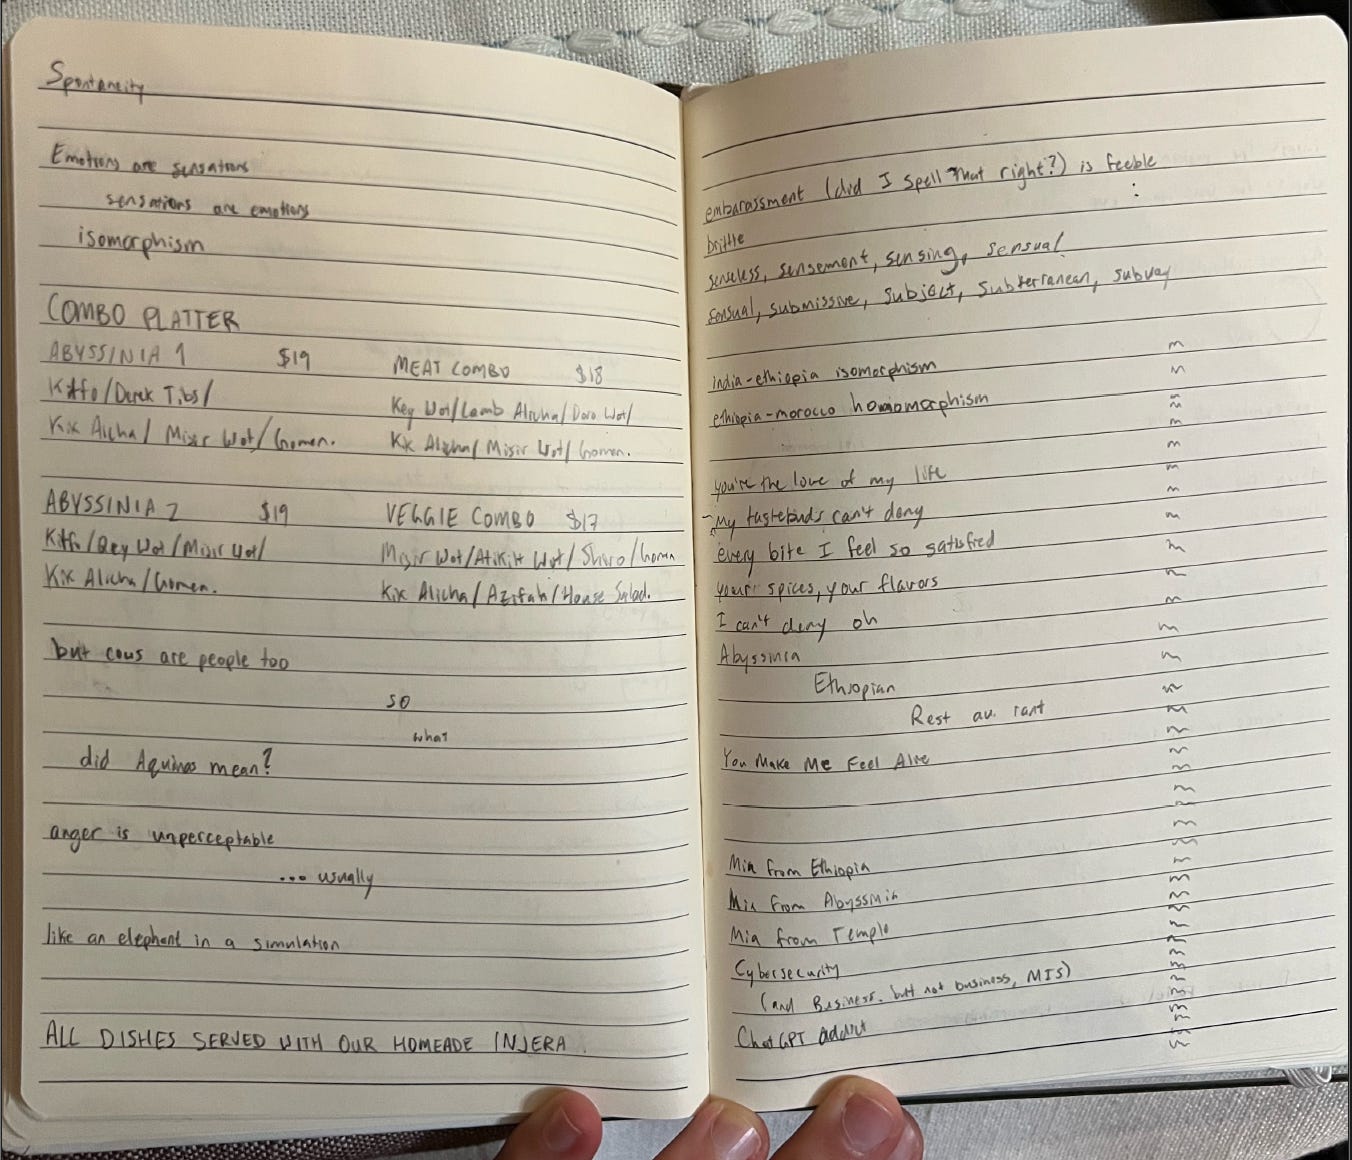 Spontaneity
Emotions are sensations
sensations are emotions
isomorphism
COMBO PLATTER
ABYSSINIA 1 $19
Kitfo/Derek Tibs/
Kix Alicha/ Misir Wot/Gomen.
MEAT COMBO $18
Key Wot/Lamb Alicha/Doro Wot/
Kix Alicha/ Misir Wot/ Gomen.
ABYSSINIA 2 $19
Kitfo/Qey Wot/Misir Wot/
Kix Alicha/Gomen.
VEGGIE COMBO $17
Misir Wot/Atikilt Wot/Shiro/Gomen
Kix Alicha/Azifah/House Salad.
but cows are people too
so
what
did Aquinas mean?
anger is unperceptable
... usually
like an elephant in a simulation
ALL DISHES SERVED WITH OUR HOMEADE INJERA
embarassment (did I spell that right?) is feeble
:
brittle
senseless, sensement, sensing, sensual
sensual, submissive, subject, subterranean, subway
india-ethiopia isomorphism
ethiopia-morocco homomorphism
you're the love of my life
My tastebuds can't deny
every bite I feel so satisfied
your spices, your flavors
I can't deny oh
Abyssinia
Ethiopian
Rest au rant
You Make Me Feel Alive
Mia from Ethiopia
Mia from Abyssinia
Mia from Temple
Cybersecurity
(and Business, but not business, MIS)
ChatGPT addict